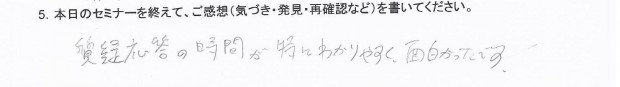 5. 本日のセミナーを終えて、ご感想(気づき・発見・再確認など)を書いてください。
質疑応答の時間が特にわかりやすく、面白かったです。